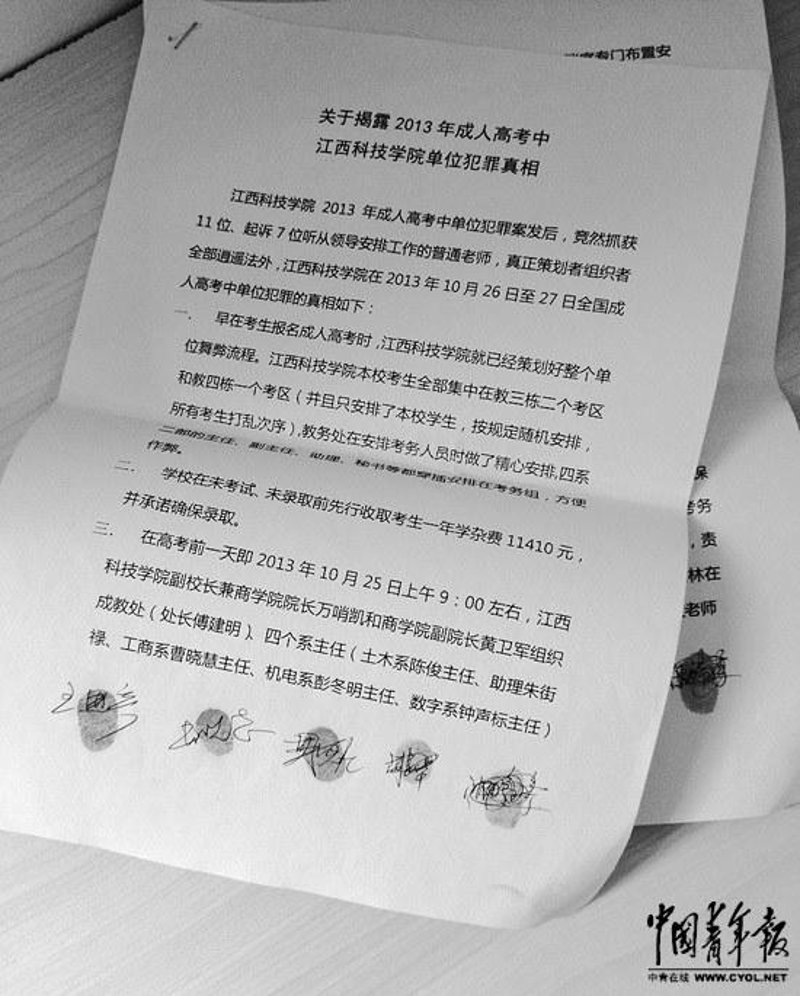 专门布置安
关于揭露 2013 年成人高考中
江西科技学院单位犯罪真相
江西科技学院 2013 年成人高考中单位犯罪案发后，竟然抓获
11 位、起诉 7 位听从领导安排工作的普通老师，真正策划者组织者
全部逍遥法外，江西科技学院在 2013 年 10 月 26 日至 27 日全国成
人高考中单位犯罪的真相如下：
一． 早在考生报名成人高考时，江西科技学院就已经策划好整个单
位舞弊流程。江西科技学院本校考生全部集中在教三栋二个考区
和教四栋一个考区（并且只安排了本校学生，按规定随机安排，
所有考生打乱次序），教务处在安排考务人员时做了精心安排，四系
二部的主任、副主任、助理、秘书等都穿插安排在考务组，方便
作弊。
二． 学校在未考试、未录取前先行收取考生一年学杂费 11410 元，
并承诺确保录取。
三． 在高考前一天即 2013 年 10 月 25 日上午 9：00 左右，江西
科技学院副校长兼商学院院长万哨凯和商学院副院长黄卫军组织
成教处（处长傅建明）、四个系主任（土木系陈俊主任、助理朱街
禄、工商系曹晓慧主任、机电系彭冬明主任、数字系钟声标主任）
保
考务
，责
林在
老师
中国青年报
中青在线 WWW.CYOL.NET